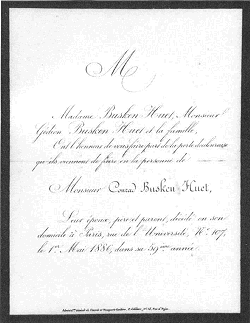 M
Madame Busken Huet, Monsieur
Gédéon Busken Huet et la famille,
Ont l'honneur de vous faire part de la perte douloureuse
qu'ils viennent de faire en la personne de
Monsieur Conrad Busken Huet,
Leur époux, père et parent, décédé en son
domicile à Paris, rue de l'Université, No. 107,
le 1er Mai 1886, dans sa 59me année.